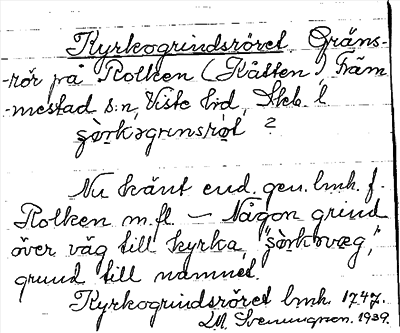 Kyrkogrindsröret, Gräns-
-rör på Rolken (Kåtten), Främ
-mestad s:n, Viste hrd, Skb. l
ʒörkəgrinsröt ?
Nu känt end. gen. lmh. f.
Rolken m.fl. — Någon grind
över väg till kyrka, "ʒörkəvæg,"
grund till namnet.
Kyrkogrindsröret lmh. 1747.
1939.